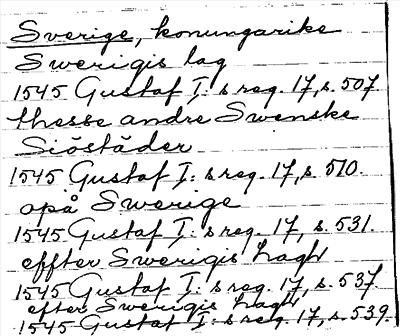 Sverige, konungarike
Swerigis lag
1545 Gustaf I: s reg. 17, s. 507.
thesse andre Swenske
Siöstäder
1545 Gustaf I: s reg. 17, s. 510.
opå Swerige
1545 Gustaf I: s reg. 17, s. 531.
effter Swerigis lagh
1545 Gustaf I: s reg. 17, s. 537.
efter Swerigis lagh
1545 Gustaf I: s reg. 17, s. 539.